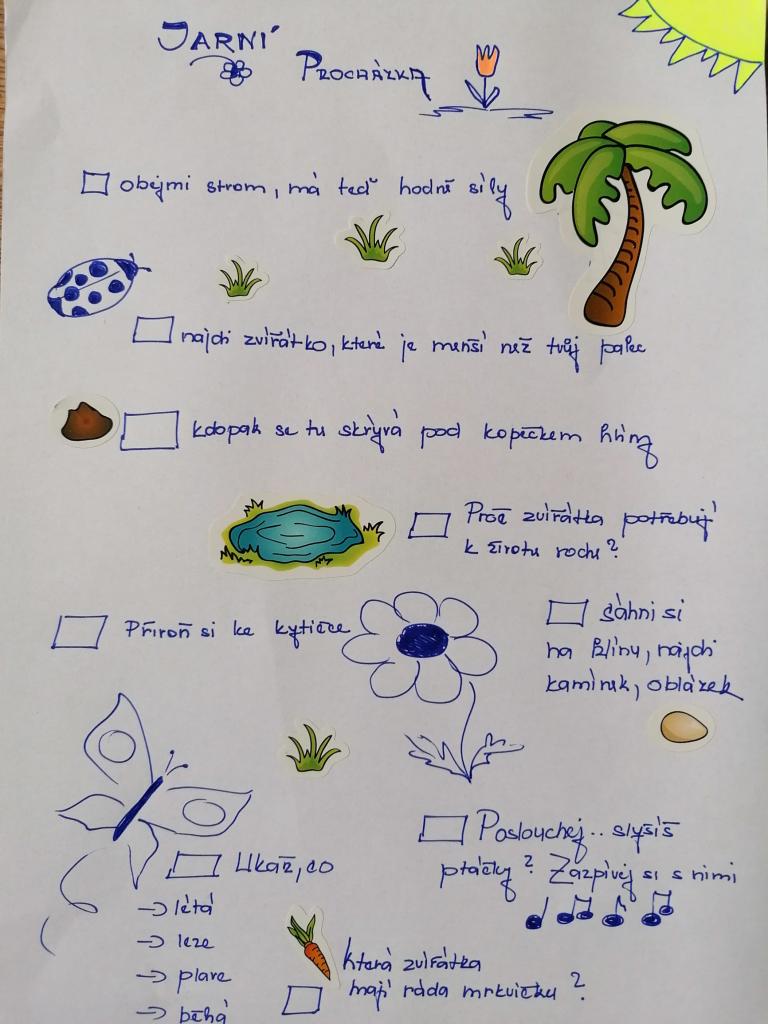 JARNÍ
PROCHÁZKA
obejmi strom, má teď hodně síly
najdi zvířátko, které je menší než tvůj palec
kdopak se tu skrývá pod kopečkem hlíny
Proč zvířátka potřebují
k životu vodu?
Přivoň si ke kytičce
sáhni si
na hlínu, najdi
kamínek, oblázek
Poslouchej.. slyšíš
ptáčky? Zazpívej si s nimi
Ukaž, co
→ létá
→ leze
→ plave
→ běhá
která zvířátka
mají ráda mrkvičku?